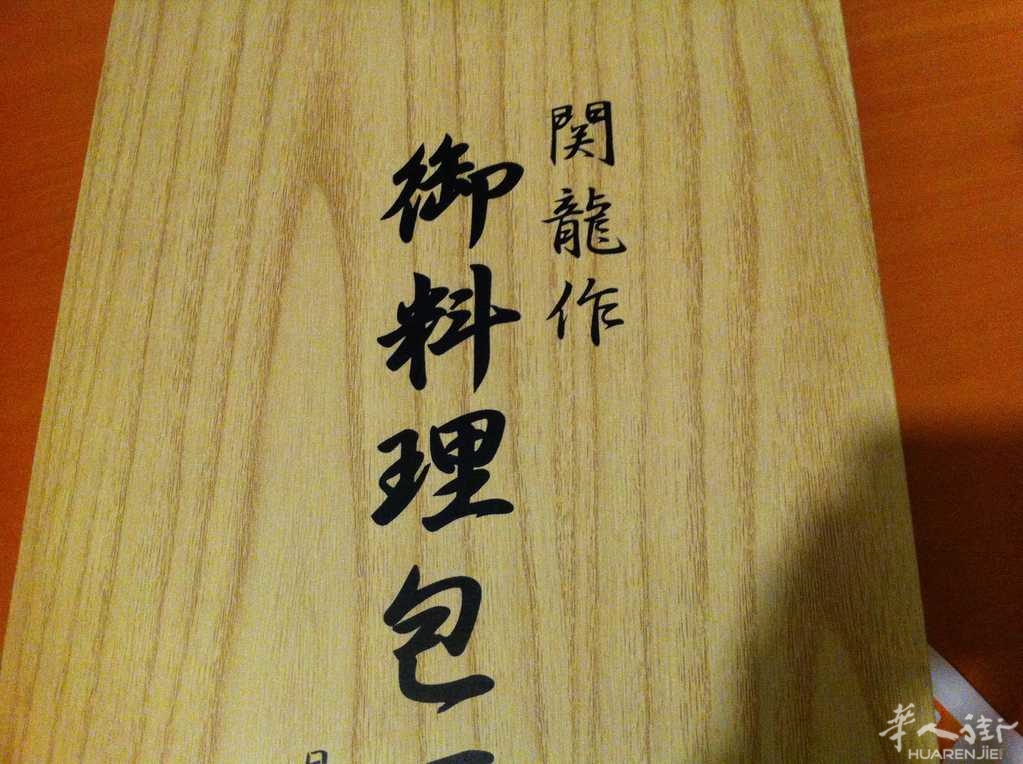 関龍作
御料理包
華人街
HUARENJIE